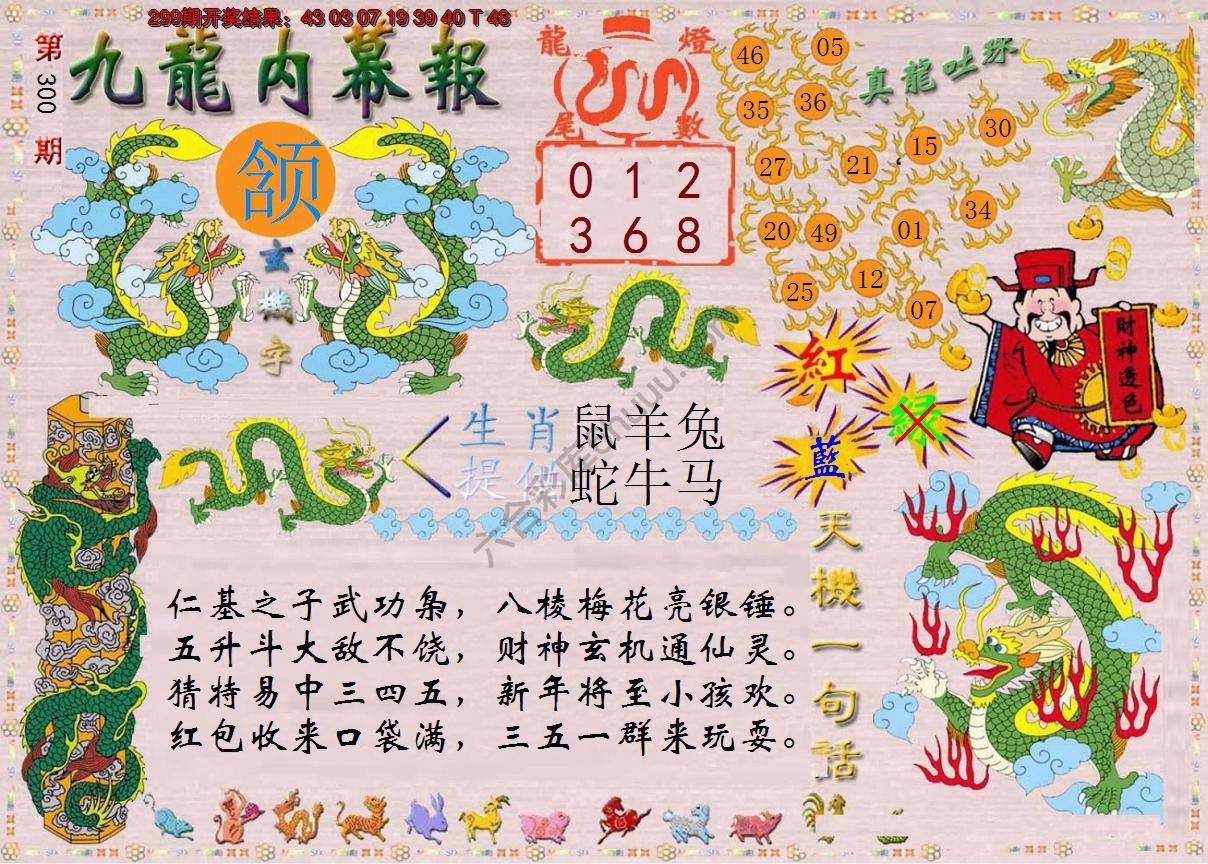 299期开奖结果：43 03 07 19 39 40 T 48
第300期
九龍内幕報
颔
玄機字
龍燈
尾數
0 1 2
3 6 8
真龍吐珠
46 05
35 36
15 30
27 21
34
20 49 01
12
25
07
財神透色
紅
綠
藍
生肖 鼠羊兔
提供 蛇牛马
天機一句话
仁基之子武功枭，八棱梅花亮银锤。
五升斗大敌不饶，财神玄机通仙灵。
猜特易中三四五，新年将至小孩欢。
红包收来口袋满，三五一群来玩耍。